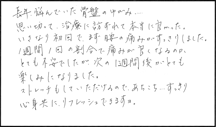 長年悩んでいた骨盤のゆがみ…
思い切って、治療に訪れて本当に良かった。
いきなり初回で耳膝の痛みがすっきりしました。
1週間1回の割合で痛みが変しなるのか、
とても不安でしたが次の1週間後がとても
楽しみになりました。
ストレッチもしていただけるので、あちこちすっきり
心身共に、リフレッシュできますよ。